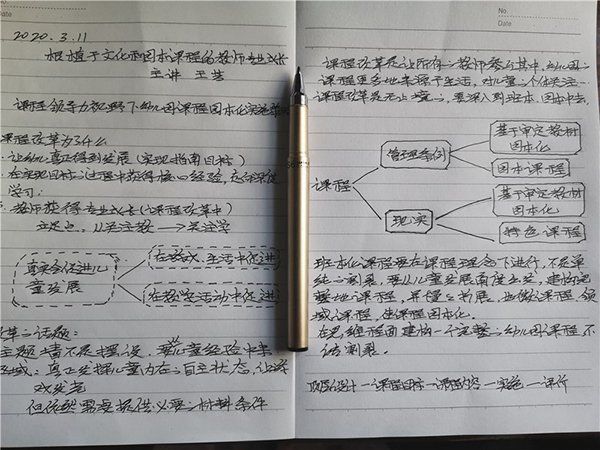 No.
Date
2020.3.11
根植于文化和园本课程的教师专业成长
主讲 王芸
课程领导力视野下幼儿园课程园本化实施
课程改革为了什么
让幼儿真正得到发展(实现指南目标)
在实现目标之过程中获得核心经验
学习。
教师获得专业成长(课程改革中)
从关注教 → 关注学
真实合促进儿
童发展
在游戏、生活中促进
在教学活动中促进
第二话题:
主题墙不是摆设
真正发挥儿童内在之自主状态,让
戏
但依然需要提供必要之材料条件
No.
Date
课程改革是让所有之教师参与其中,幼儿园之
课程更多地来源于生活,对儿童之个体关注
课程改革是无止境之,要深入到班本、园本中去。
课程
管理条例
基于审定教材
园本化
园本课程
现实
基于审定教材
园本化
特色课程
班本化课程要在课程理念下进行,不是单
纯之割裂,要从儿童发展角度出发,建构完
整地课程,并健全拓展,也做课程领
域课程,使课程园本化。
建构一个完整之幼儿园课程不
能割裂。
顶层设计—课程目标—课程内容—实施—课评